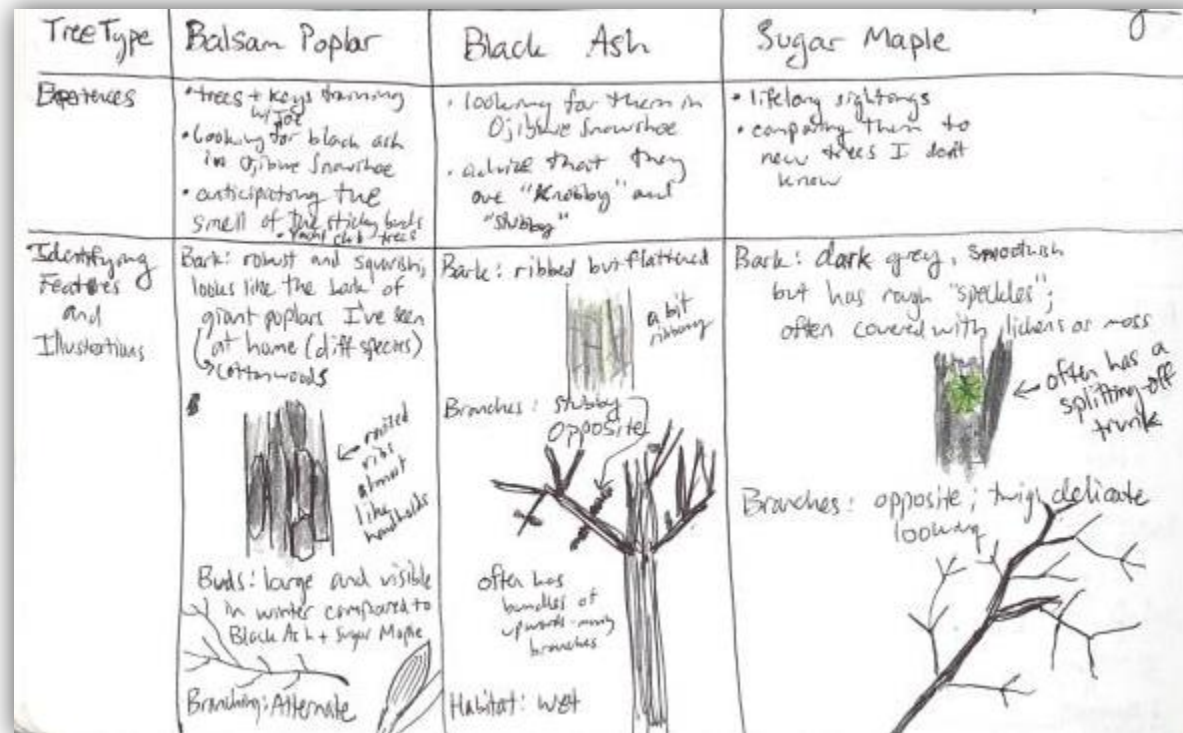 Tree Type
Balsam Poplar
Black Ash
Sugar Maple
Experiences
• trees + keys training
w/ Joe
• looking for black ash
in Ojibwe Snowshoe
• anticipating the
smell of the sticky buds
• Yacht club trees
• looking for them in
Ojibwe Snowshoe
• advice that they
are "Knobby" and
"stubby"
• lifelong sightings
• comparing them to
new trees I don't
know
Identifying
Features
and
Illustrations
Bark: robust and squarish,
looks like the bark of
giant poplars I've seen
at home (diff species)
cottonwoods
raised
ribs
almost
like
handholds
Buds: large and visible
in winter compared to
Black Ash + Sugar Maple
Branching: Alternate
Bark: ribbed but flattened
a bit
Branches: stubby
Opposite
often has
bundles of
upwards-
branches
Habitat: wet
Bark: dark grey, smoothish
but has rough "speckles";
often covered with lichens or moss
often has a
splitting-off
trunk
Branches: opposite; twigs delicate
looking